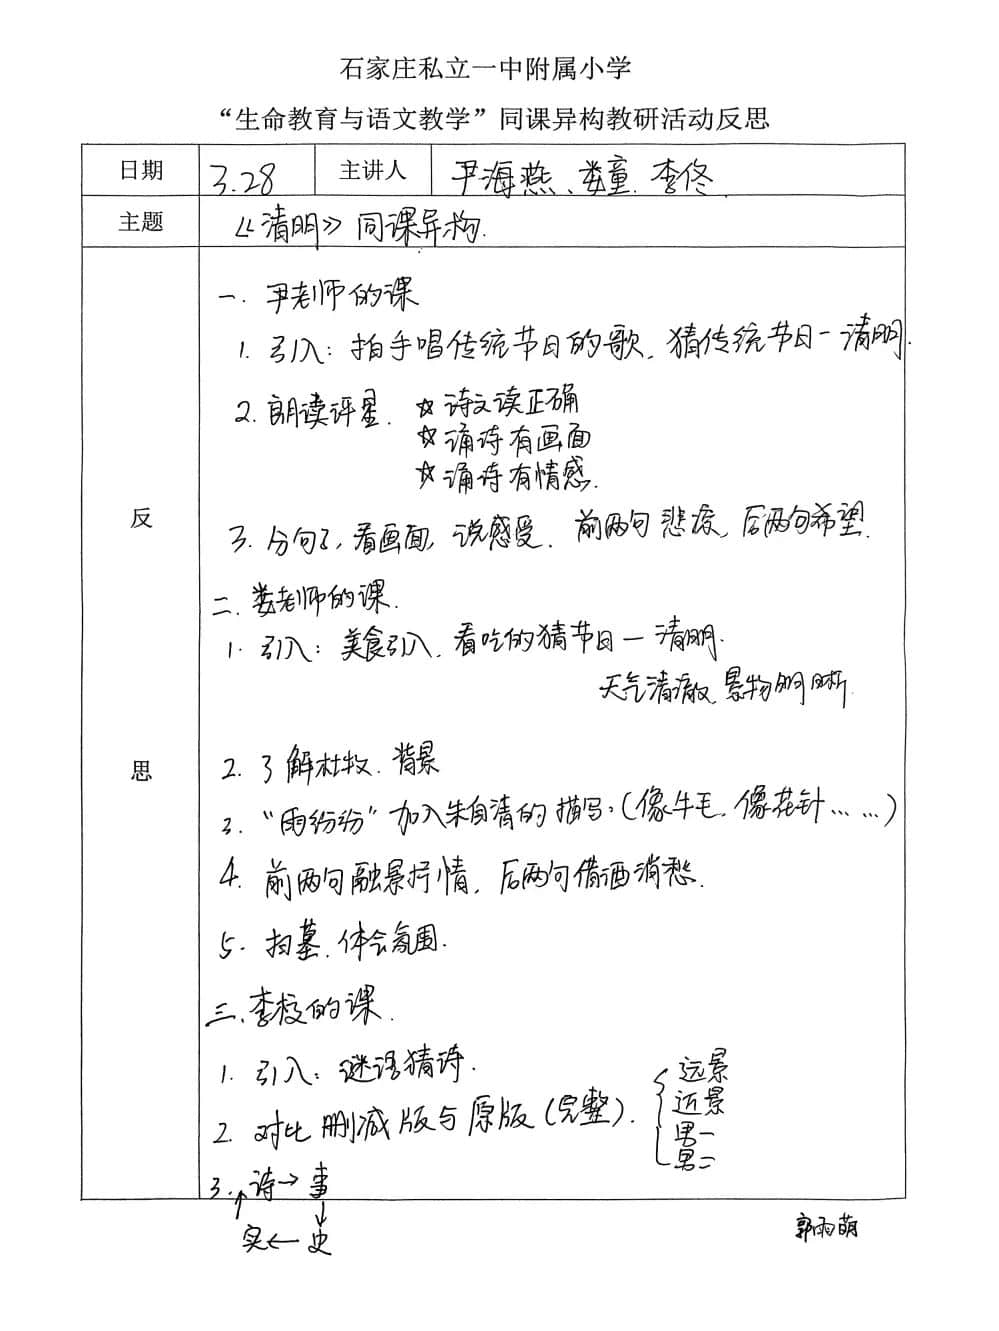 石家庄私立一中附属小学
“生命教育与语文教学”同课异构教研活动反思
日期 3.28 主讲人 尹海燕、娄童、李佟
主题 《清明》同课异构.
反思
一. 尹老师的课
1. 引入: 拍手唱传统节日的歌, 猜传统节日—清明.
2. 朗读评星. ☆诗文读正确
☆诵诗有画面
☆诵诗有情感.
3. 分句了, 看画面, 说感受. 前两句悲凉, 后两句希望.
二. 娄老师的课.
1. 引入: 美食引入, 看吃的猜节日—清明.
天气清澈, 景物明晰.
2. 了解杜牧. 背景
3. “雨纷纷”加入朱自清的描写: (像牛毛, 像花针……)
4. 前两句融景抒情, 后两句借酒消愁.
5. 扫墓. 体会氛围.
三. 李校的课.
1. 引入: 谜语猜诗.
2. 对比删减版与原版(完整).
远景
近景
男一
男二
3. 诗→事
↑ ↓
实←史
郭雨萌